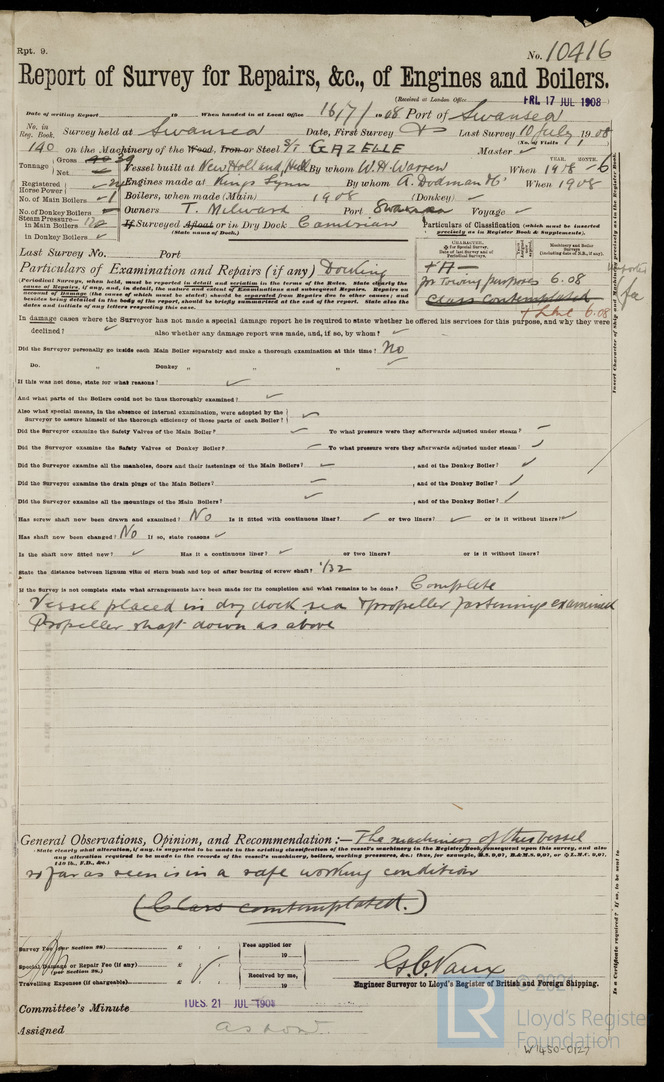 Rpt. 9.
No. 10416
Report of Survey for Repairs, &c., of Engines and Boilers.
(Received at London Office FRI. 17 JUL 1908)
Date of writing Report 19 When handed in at Local Office 16/7/1908 Port of Swansea
No. in Reg. Book. Survey held at Swansea Date, First Survey Last Survey 10 July 1908
(No. of Visits 1)
140 on the Machinery of the Wood, Iron or Steel S/T GAZELLE Master ✓
Tonnage Gross 39 Net
Vessel built at New Holland, Hull By whom W. H. Warren When 1908 - 6
YEAR. MONTH.
Registered Horse Power
Engines made at Kings Lynn By whom A. Dodman & Co When 1908
No. of Main Boilers 1 Boilers, when made (Main) 1908 (Donkey) ✓
No. of Donkey Boilers ✓ Owners T. Milward Port Swansea Voyage ✓
Steam Pressure in Main Boilers
If Surveyed Afloat or in Dry Dock Cambrian
(State name of Dock.)
in Donkey Boilers ✓
Particulars of Classification (which must be inserted precisely as in Register Book & Supplements).
Last Survey No. Port
CHARACTER. Machinery and Boiler Surveys (including date of N.B., if any).
Particulars of Examination and Repairs (if any) Docking
+A—
for Towing purposes 6.08
Class contemplated
+LMC 6.08
Periodical Surveys, when held, must be reported in detail and seriatim in the terms of the Rules. State clearly the
cause of Repairs, if any, and, in detail, the nature and extent of Examinations and subsequent Repairs. Repairs on
account of Damage (the cause of which must be stated) should be separated from Repairs due to other causes; and
besides being detailed in the body of the report, should be briefly summarised at the end of the report. State also the
dates and initials of any letters respecting this case.
In damage cases where the Surveyor has not made a special damage report he is required to state whether he offered his services for this purpose, and why they were
declined? ✓ also whether any damage report was made, and, if so, by whom? ✓
Did the Surveyor personally go inside each Main Boiler separately and make a thorough examination at this time? No
Do. " Donkey " " "
If this was not done, state for what reasons? ✓
And what parts of the Boilers could not be thus thoroughly examined? ✓
Also what special means, in the absence of internal examination, were adopted by the
Surveyor to assure himself of the thorough efficiency of those parts of each Boiler? ✓
Did the Surveyor examine the Safety Valves of the Main Boiler? ✓ To what pressure were they afterwards adjusted under steam? ✓
Did the Surveyor examine the Safety Valves of Donkey Boiler? ✓ To what pressure were they afterwards adjusted under steam? ✓
Did the Surveyor examine all the manholes, doors and their fastenings of the Main Boilers? ✓, and of the Donkey Boiler? ✓
Did the Surveyor examine the drain plugs of the Main Boilers? ✓, and of the Donkey Boiler? ✓
Did the Surveyor examine all the mountings of the Main Boilers? ✓, and of the Donkey Boiler? ✓
Has screw shaft now been drawn and examined? No Is it fitted with continuous liner? ✓ or two liners? ✓ or is it without liners? ✓
Has shaft now been changed? No If so, state reasons ✓
Is the shaft now fitted new? ✓ Has it a continuous liner? ✓ or two liners? or is it without liners?
State the distance between lignum vitæ of stern bush and top of after bearing of screw shaft? 1/32
If the Survey is not complete state what arrangements have been made for its completion and what remains to be done? Complete
Vessel placed in dry dock sea & propeller fastenings examined
Propeller shaft down as above
General Observations, Opinion, and Recommendation :— The machinery of this vessel
(State clearly what alteration, if any, is suggested to be made in the existing classification of the vessel's machinery in the Register Book, consequent upon this survey, and also
any alteration required to be made in the records of the vessel's machinery, boilers, working pressures, &c.: thus, for example, B.S. 9,07, B.&M.S. 9,07, or L.M.C. 9,07,
140 lb., F.D., &c.)
so far as seen is in a safe working condition
(Class contemplated.)
Survey Fee (per Section 28) £
Special Damage or Repair Fee (if any) (per Section 28.) £
Travelling Expenses (if chargeable) £
Fees applied for 19
Received by me, 19
G. C. Vaux
Engineer Surveyor to Lloyd's Register of British and Foreign Shipping.
Committee's Minute TUES. 21 JUL 1908
Assigned as now
Insert Character of Ship and Machinery precisely as in the Register Book.
Is a Certificate required? If so, to be sent to
© 2021
LR
Lloyd's Register
Foundation
W1450-0127